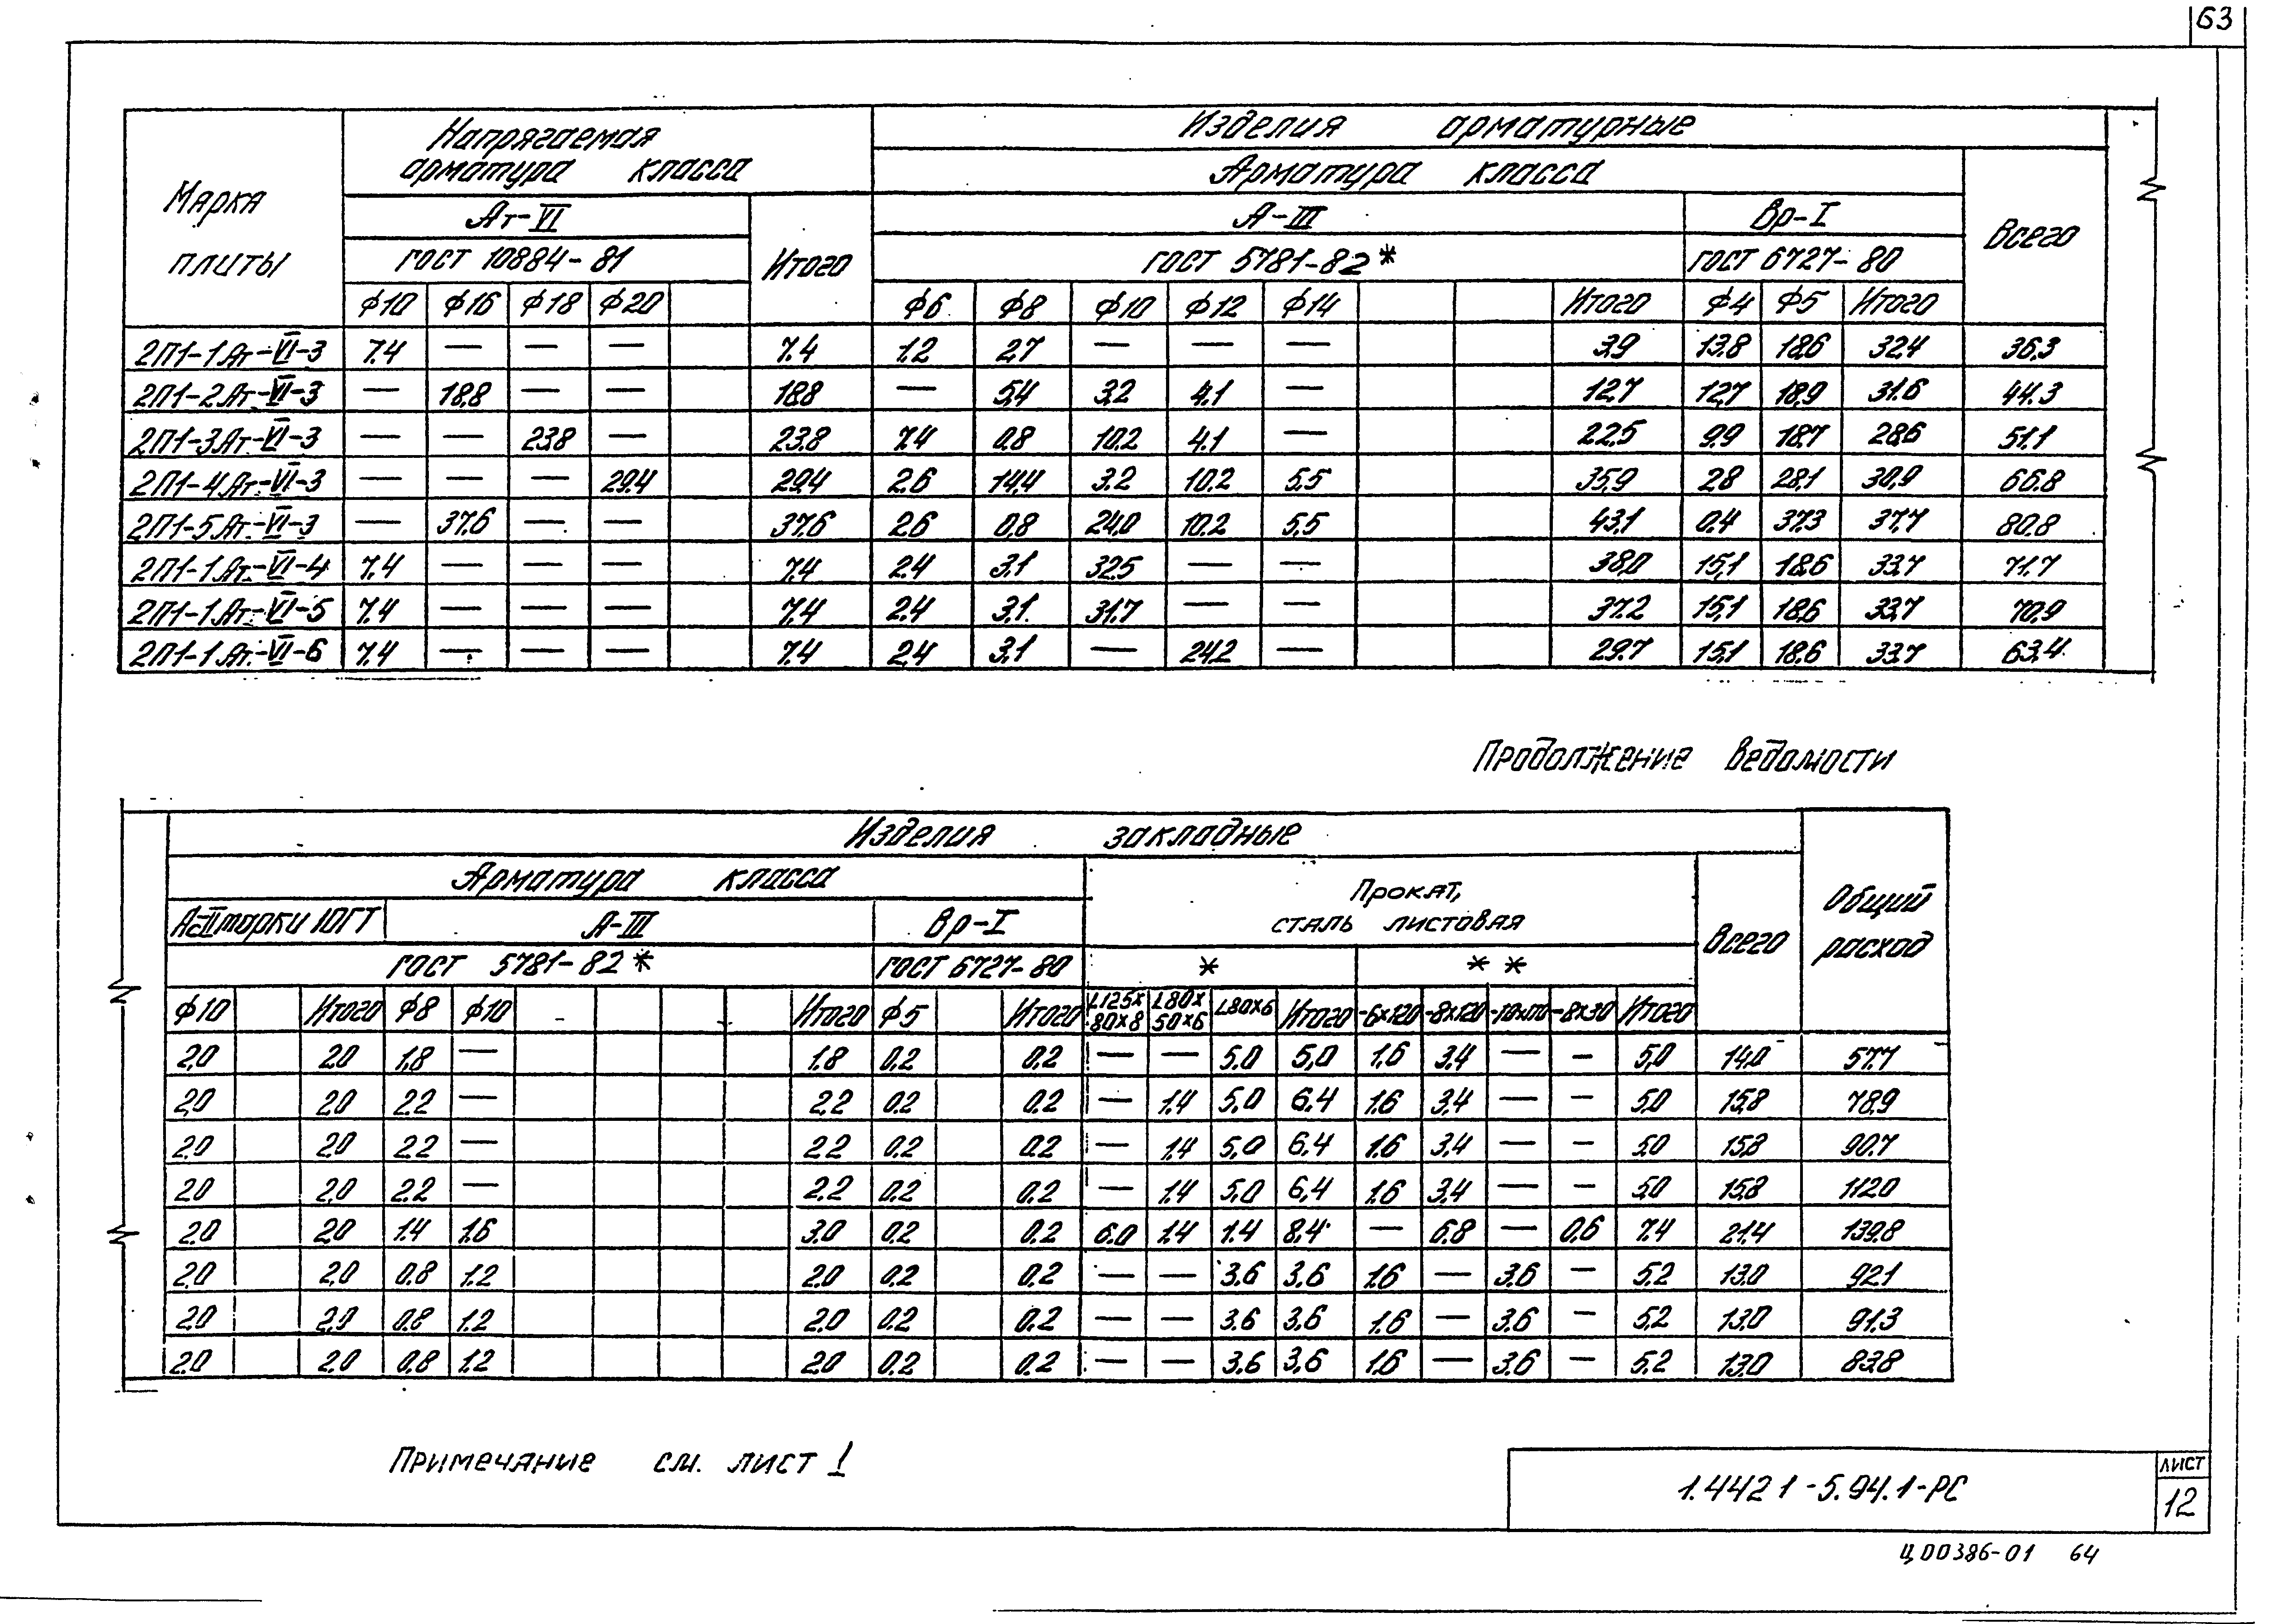 63
Напрягаемая арматура класса | Изделия арматурные
Марка плиты | Арматура класса | Всего
Ат-VI | Итого | А-III | Вр-I
ГОСТ 10884-81 | ГОСТ 5781-82* | ГОСТ 6727-80
ф10 ф16 ф18 ф20 ф6 ф8 ф10 ф12 ф14 Итого ф4 ф5 Итого
2П1-1Ат-VI-3 7.4 — — — 7.4 1.2 2,7 — — — 3,9 13.8 18,6 32,4 36,3
2П1-2Ат-VI-3 — 18,8 — — 18,8 — 5,4 3,2 4.1 — 12,7 12,7 18,9 31.6 44.3
2П1-3Ат-VI-3 — — 23,8 — 23,8 7,4 0,8 10,2 4.1 — 22,5 9,9 18,7 28,6 51,1
2П1-4Ат-VI-3 — — — 29,4 29,4 2,6 14,4 3.2 10.2 5.5 35,9 2,8 28,1 30,9 66.8
2П1-5Ат-VI-3 — 37,6 — — 37,6 2,6 0,8 24,0 10.2 5.5 43,1 0,4 37,3 37,7 80,8
2П1-1Ат-VI-4 7,4 — — — 7,4 2,4 3,1 32,5 — — 38,0 15,1 18,6 33,7 71.7
2П1-1Ат-VI-5 7,4 — — — 7,4 2,4 3,1 31,7 — — 37,2 15,1 18,6 33,7 70,9
2П1-1Ат-VI-6 7,4 — — — 7,4 2,4 3,1 — 24,2 — 29,7 15,1 18,6 33,7 63,4
Продолжение ведомости
Изделия закладные | Общий расход
Арматура класса | Прокат, сталь листовая | Всего
А-II марки 10ГТ | А-III | Вр-I
ГОСТ 5781-82* | ГОСТ 6727-80 | * | **
ф10 Итого ф8 ф10 Итого ф5 Итого L125×80×8 L80×50×6 L80×6 Итого -6×120 -8×120 -8×30 Итого
2,0 2,0 1,8 — 1.8 0.2 0.2 — — 5.0 5,0 1.6 3.4 — — 5,0 14,0 57,7
2,0 2,0 2,2 — 2,2 0.2 0.2 — 1.4 5,0 6.4 1.6 3,4 — — 5,0 15,8 78,9
2,0 2,0 2,2 — 2,2 0.2 0.2 — 1.4 5,0 6.4 1.6 3,4 — — 5,0 15,8 90,7
2.0 2,0 2.2 — 2,2 0.2 0.2 — 1.4 5,0 6,4 1.6 3,4 — — 5,0 15,8 112,0
2.0 2,0 1.4 1.6 3.0 0.2 0.2 6.0 1.4 1.4 8.4 — 6.8 — 0,6 7.4 21,4 139,8
2.0 2,0 0.8 1.2 2.0 0.2 0.2 — — 3.6 3,6 1.6 — 3.6 — 5,2 13,0 92,1
2.0 2,0 0.8 1.2 2,0 0.2 0.2 — — 3.6 3,6 1.6 — 3.6 — 5,2 13,0 91,3
2.0 2.0 0.8 1.2 2,0 0.2 0.2 — — 3.6 3,6 1.6 — 3.6 — 5,2 13,0 83,8
Примечание см. лист 1
1.442 1-5.94.1-РС
лист
12
Ц00386-01 64